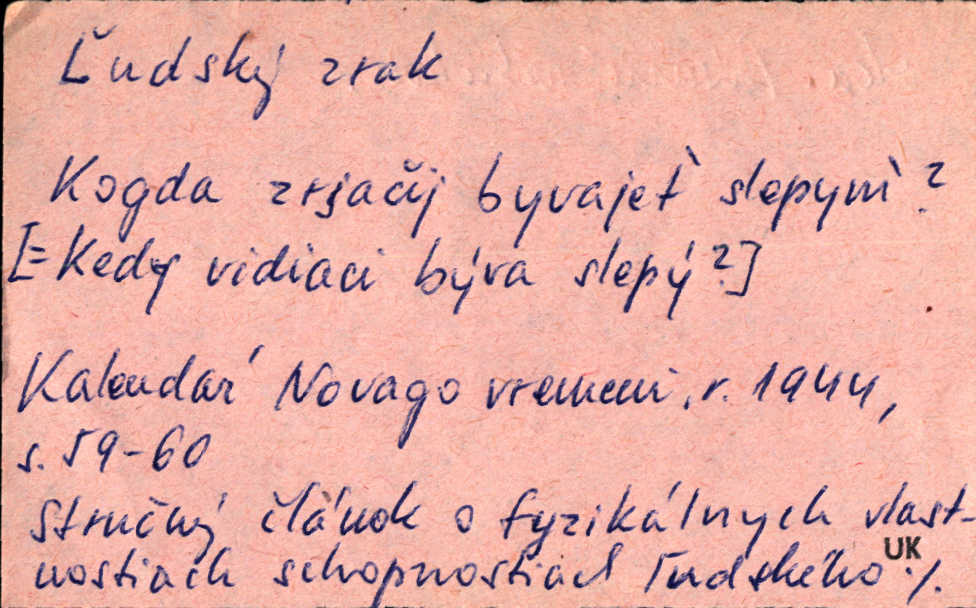 Ľudský zrak
Kogda zrjačij byvajeť slepym?
[=Kedy vidiaci býva slepý?]
Kalendar' Novago vremeni, r. 1944,
s. 59-60
Stručný článok o fyzikálnych vlast-
nostiach schopnostiach ľudského ./.
UK